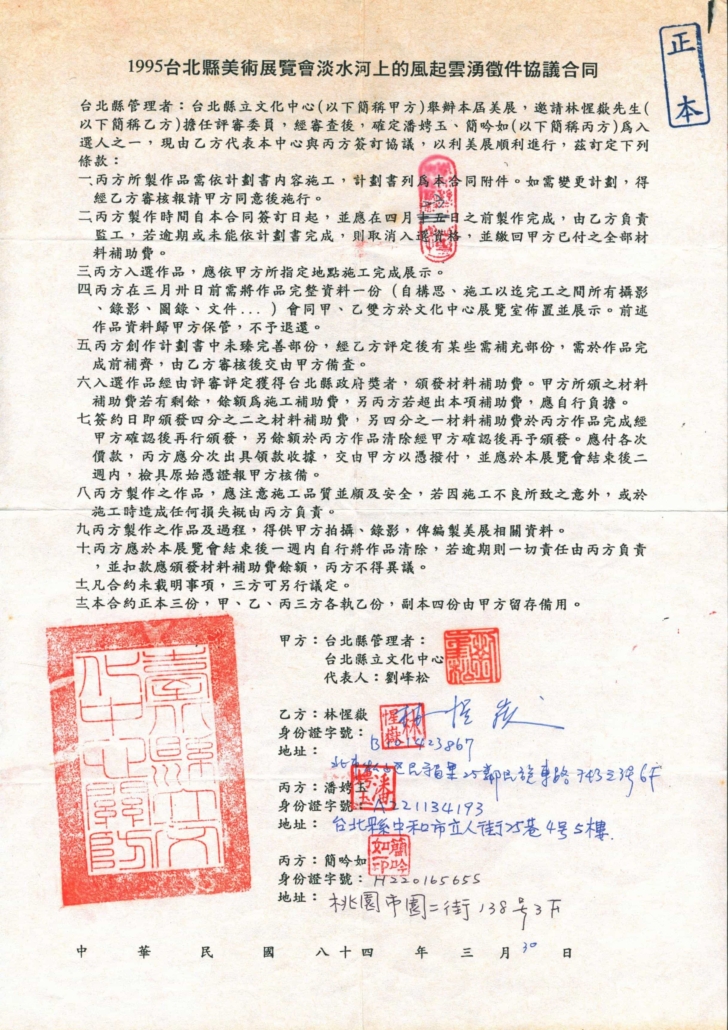 正本
1995台北縣美術展覽會淡水河上的風起雲湧徵件協議合同
台北縣管理者：台北縣立文化中心(以下簡稱甲方)舉辦本屆美展，邀請林惺嶽先生(
以下簡稱乙方)擔任評審委員，經審查後，確定潘娉玉、簡吟如(以下簡稱丙方)為入
選人之一，現由乙方代表本中心與丙方簽訂協議，以利美展順利進行，茲訂定下列
條款：
一丙方所製作品需依計劃書內容施工，計劃書列為本合同附件。如需變更計劃，得
經乙方審核報請甲方同意後施行。
二丙方製作時間自本合同簽訂日起，並應在四月十五日之前製作完成，由乙方負責
監工，若逾期或未能依計劃書完成，則取消入選資格，並繳回甲方已付之全部材
料補助費。
三丙方入選作品，應依甲方所指定地點施工完成展示。
四丙方在三月卅日前需將作品完整資料一份（自構思、施工以迄完工之間所有攝影
、錄影、圖錄、文件...）會同甲、乙雙方於文化中心展覽室佈置並展示。前述
作品資料歸甲方保管，不予退還。
五丙方創作計劃書中未臻完善部份，經乙方評定後有某些需補充部份，需於作品完
成前補齊，由乙方審核後交由甲方備查。
六入選作品經由評審評定獲得台北縣政府獎者，頒發材料補助費。甲方所頒之材料
補助費若有剩餘，餘額為施工補助費，另丙方若超出本項補助費，應自行負擔。
七簽約日即頒發四分之二之材料補助費，另四分之一材料補助費於丙方作品完成經
甲方確認後再行頒發，另餘額於丙方作品清除經甲方確認後再予頒發。應付各次
價款，丙方應分次出具領款收據，交由甲方以憑撥付，並應於本展覽會結束後二
週內，檢具原始憑證報甲方核備。
八丙方製作之作品，應注意施工品質並顧及安全，若因施工不良所致之意外，或於
施工時造成任何損失概由丙方負責。
九丙方製作之作品及過程，得供甲方拍攝、錄影，俾編製美展相關資料。
十丙方應於本展覽會結束後一週內自行將作品清除，若逾期則一切責任由丙方負責
，並扣款應頒發材料補助費餘額，丙方不得異議。
十一凡合約未載明事項，三方可另行議定。
十二本合約正本三份，甲、乙、丙三方各執乙份，副本四份由甲方留存備用。
臺北縣立文化中心關防
甲方：台北縣管理者：
台北縣立文化中心
代表人：劉峰松
乙方：林惺嶽 林惺嶽
身份證字號：
地址：
丙方：潘娉玉
身份證字號：A221134193
地址：台北縣中和市立人街25巷4号5樓
丙方：簡吟如 簡吟如印
身份證字號：H220165655
地址：桃園市園二街138号3F
中華民國八十四年三月30日